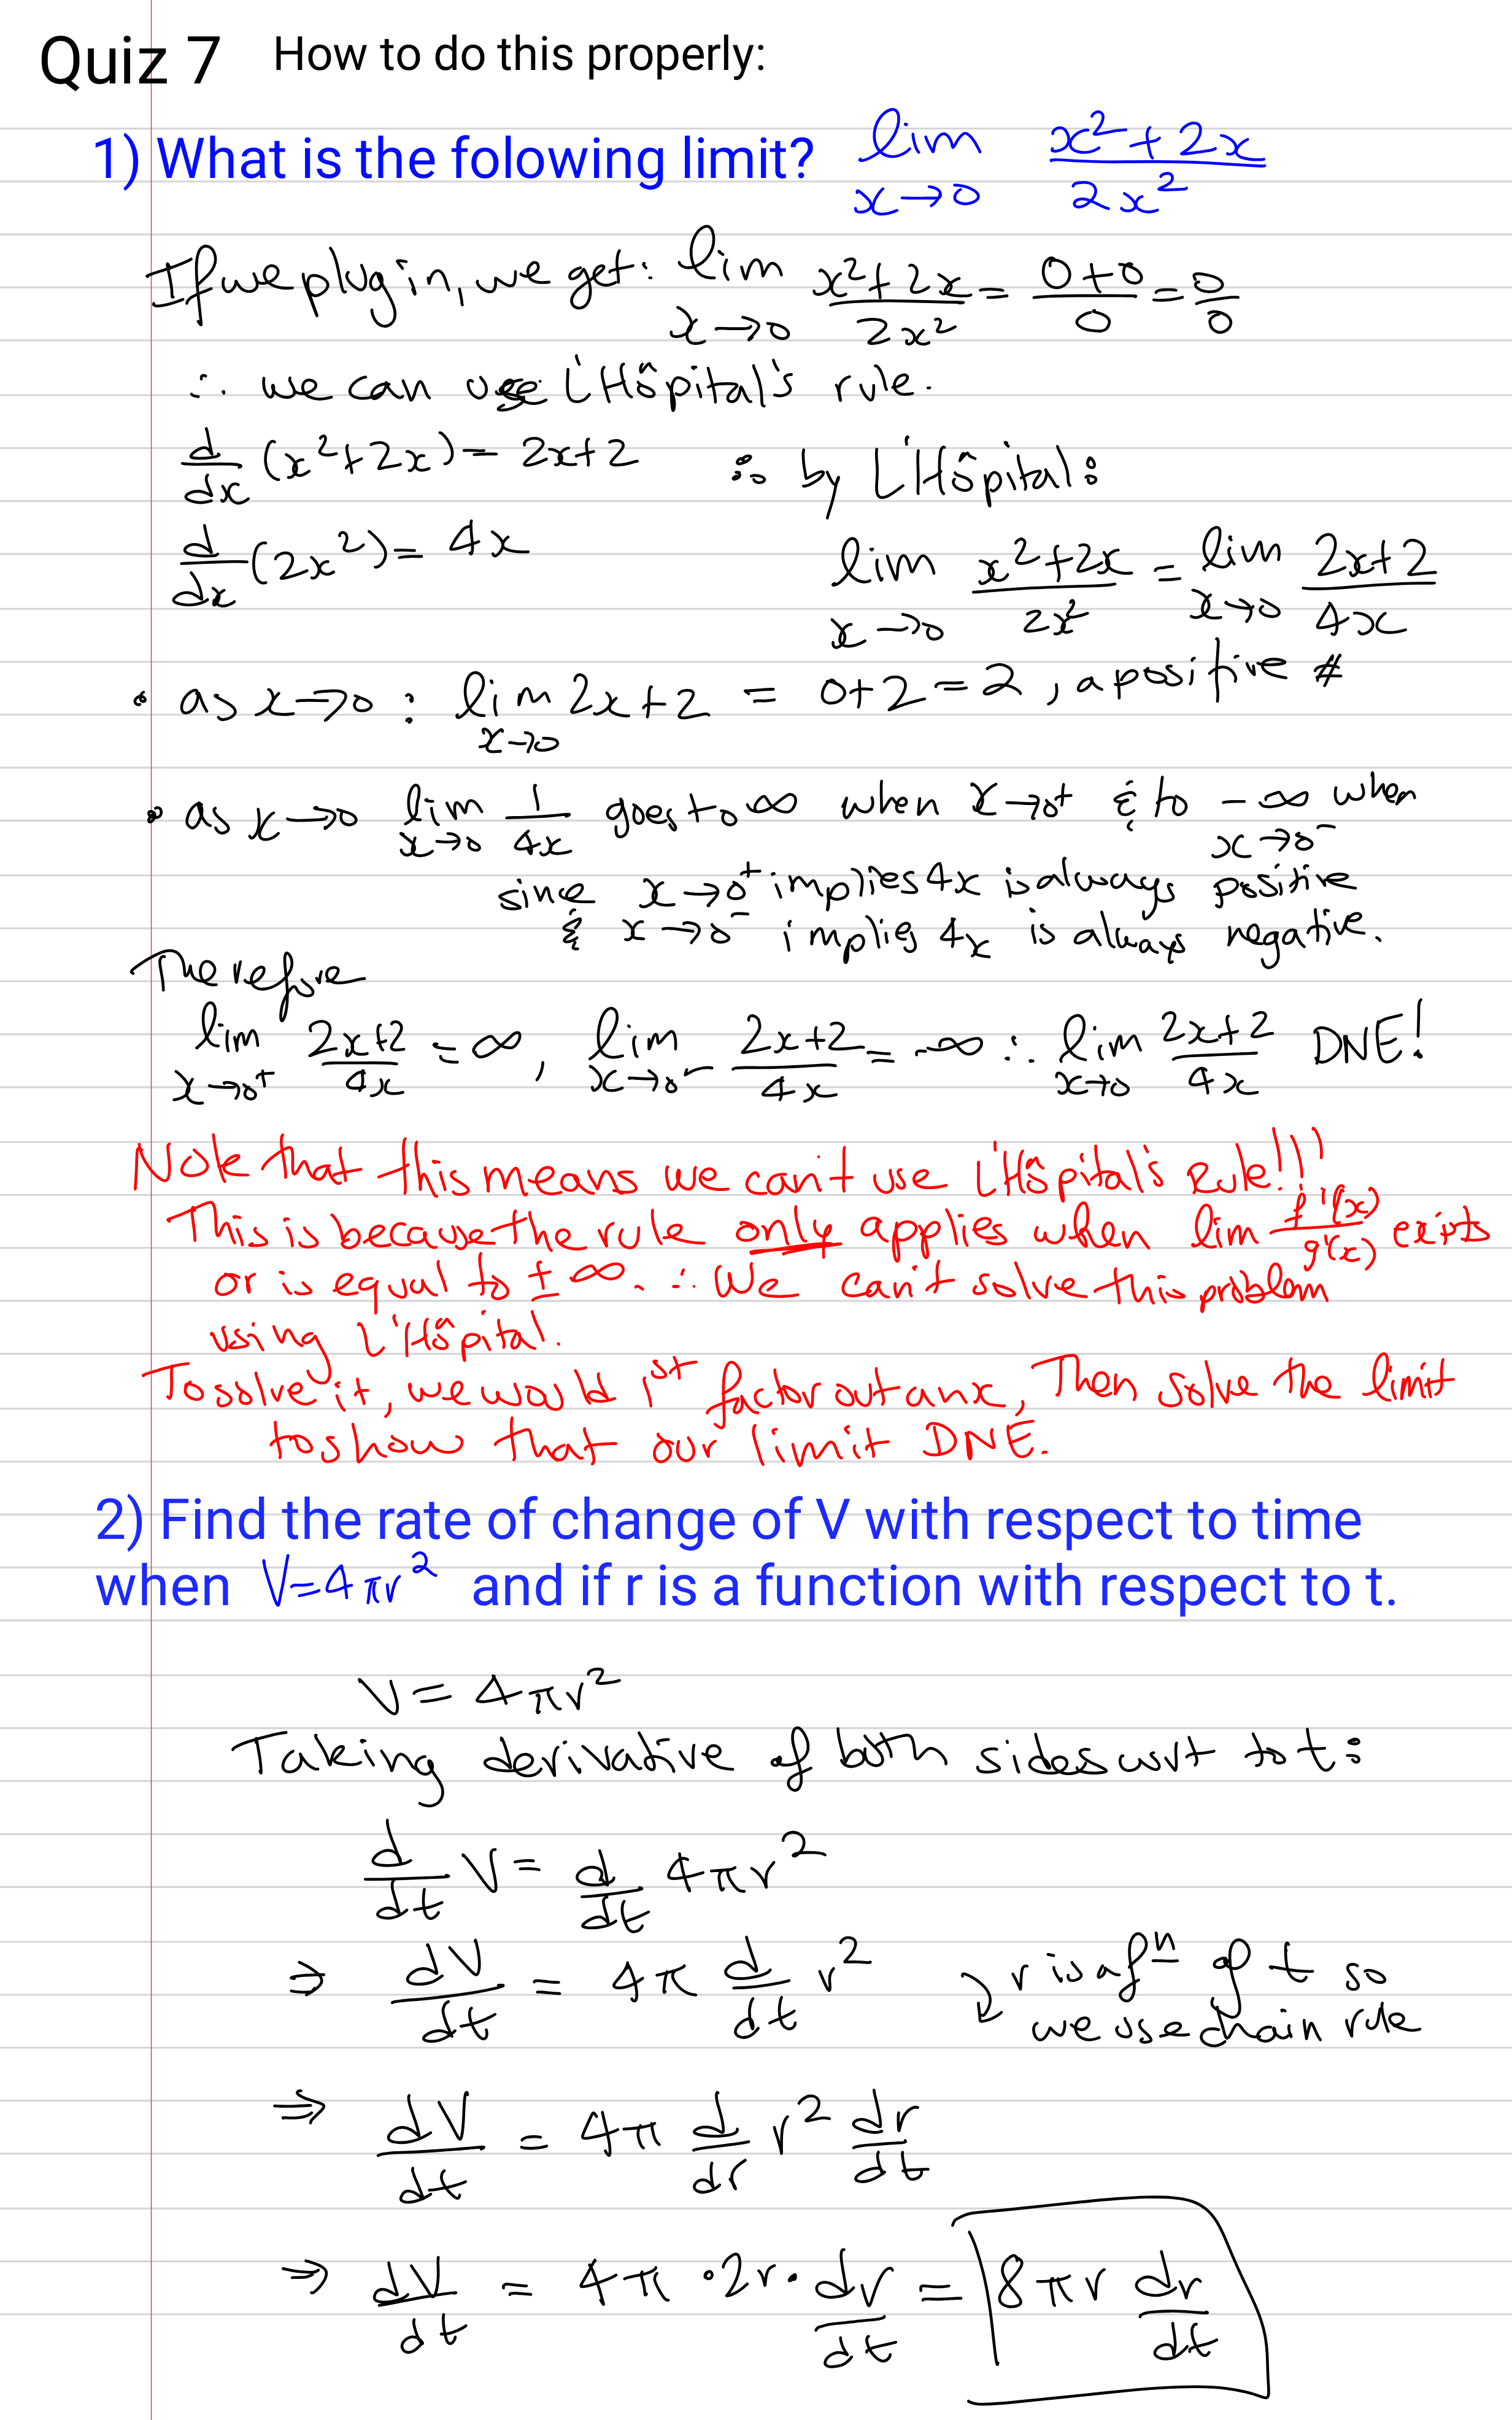 Quiz 7 How to do this properly:
1) What is the folowing limit? lim x→0 (x²+2x)/(2x²)
If we plug in, we get: lim x→0 (x²+2x)/(2x²) = (0+0)/0 = 0/0
∴ we can use L'Hôpital's rule.
d/dx (x²+2x) = 2x+2 ∴ by L'Hôpital:
d/dx (2x²) = 4x lim x→0 (x²+2x)/(2x²) = lim x→0 (2x+2)/(4x)
• as x→0 : lim x→0 2x+2 = 0+2=2, a positive #
• as x→0 lim x→0 1/(4x) goes to ∞ when x→0⁺ & to -∞ when x→0⁻
since x→0⁺ implies 4x is always positive
& x→0⁻ implies 4x is always negative.
Therefore
lim x→0⁺ (2x+2)/(4x) = ∞, lim x→0⁻ (2x+2)/(4x) = -∞ ∴ lim x→0 (2x+2)/(4x) DNE!
Note that this means we can't use L'Hôpital's Rule!!!
This is because the rule only applies when lim f'(x)/g'(x) exists
or is equal to ±∞. ∴ We can't solve this problem
using L'Hôpital.
To solve it, we would 1st factor out an x, Then solve the limit
to show that our limit DNE.
2) Find the rate of change of V with respect to time
when V=4πr² and if r is a function with respect to t.
V = 4πr²
Taking derivative of both sides wrt to t:
d/dt V = d/dt 4πr²
⇒ dV/dt = 4π d/dt r² r is a fⁿ of t so
we use chain rule
⇒ dV/dt = 4π d/dr r² dr/dt
⇒ dV/dt = 4π · 2r · dr/dt = 8πr dr/dt